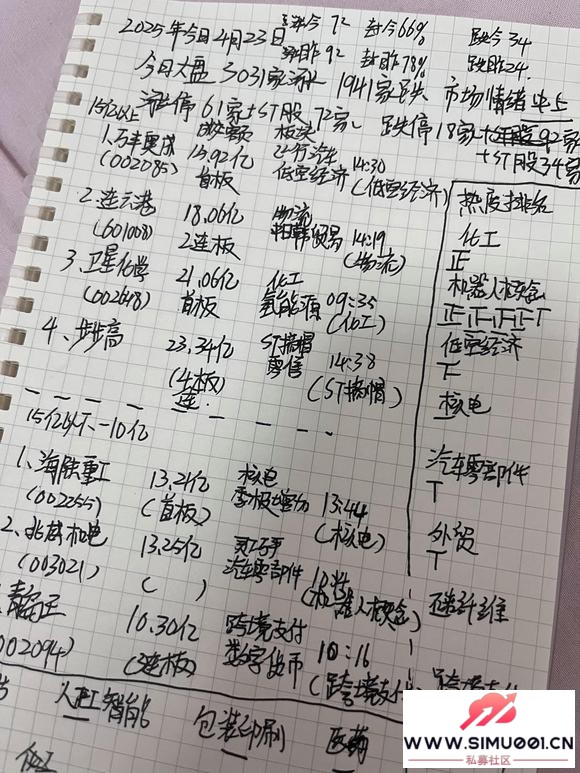 2025年今日4月23日
涨今72 封今66% 跌今34
涨昨92 封昨78% 跌昨24
今日大盘3031家涨 1941家跌 市场情绪中上
涨停61家+ST股72家 跌停18家+
+ST股34家
15亿以上 成交额 板块
1.万丰奥威 15.92亿 汽车 14:30
(002085) 首板 低空经济 (低空经济)
2.连云港 18.06亿 物流 14:19
(601008) 2连板 贸易 (物流)
3.卫星化学 21.06亿 化工 09:35
(002648) 首板 氢能源 (化工)
4、步步高 23.34亿 ST摘帽 14:38
(4板) 零售 (ST摘帽)
连
15亿以下-10亿
1.海陆重工 13.21亿 核电 13:44
(002255) (首板) 季报增 (核电)
2.兆威机电 13.25亿 灵巧手
(003021) ( ) 汽车零部件 (机器人概念)
青岛金王 10.30亿 跨境支付 10:16
002094) 数字货币 (跨境支付
人工智能 包装印刷 医药
化工
热度排名
化工
正
机器人概念
低空经济
核电
一
汽车零部件
T
外贸
T
碳纤维
跨境支付
WWW.SIMU001.CN
私募社区